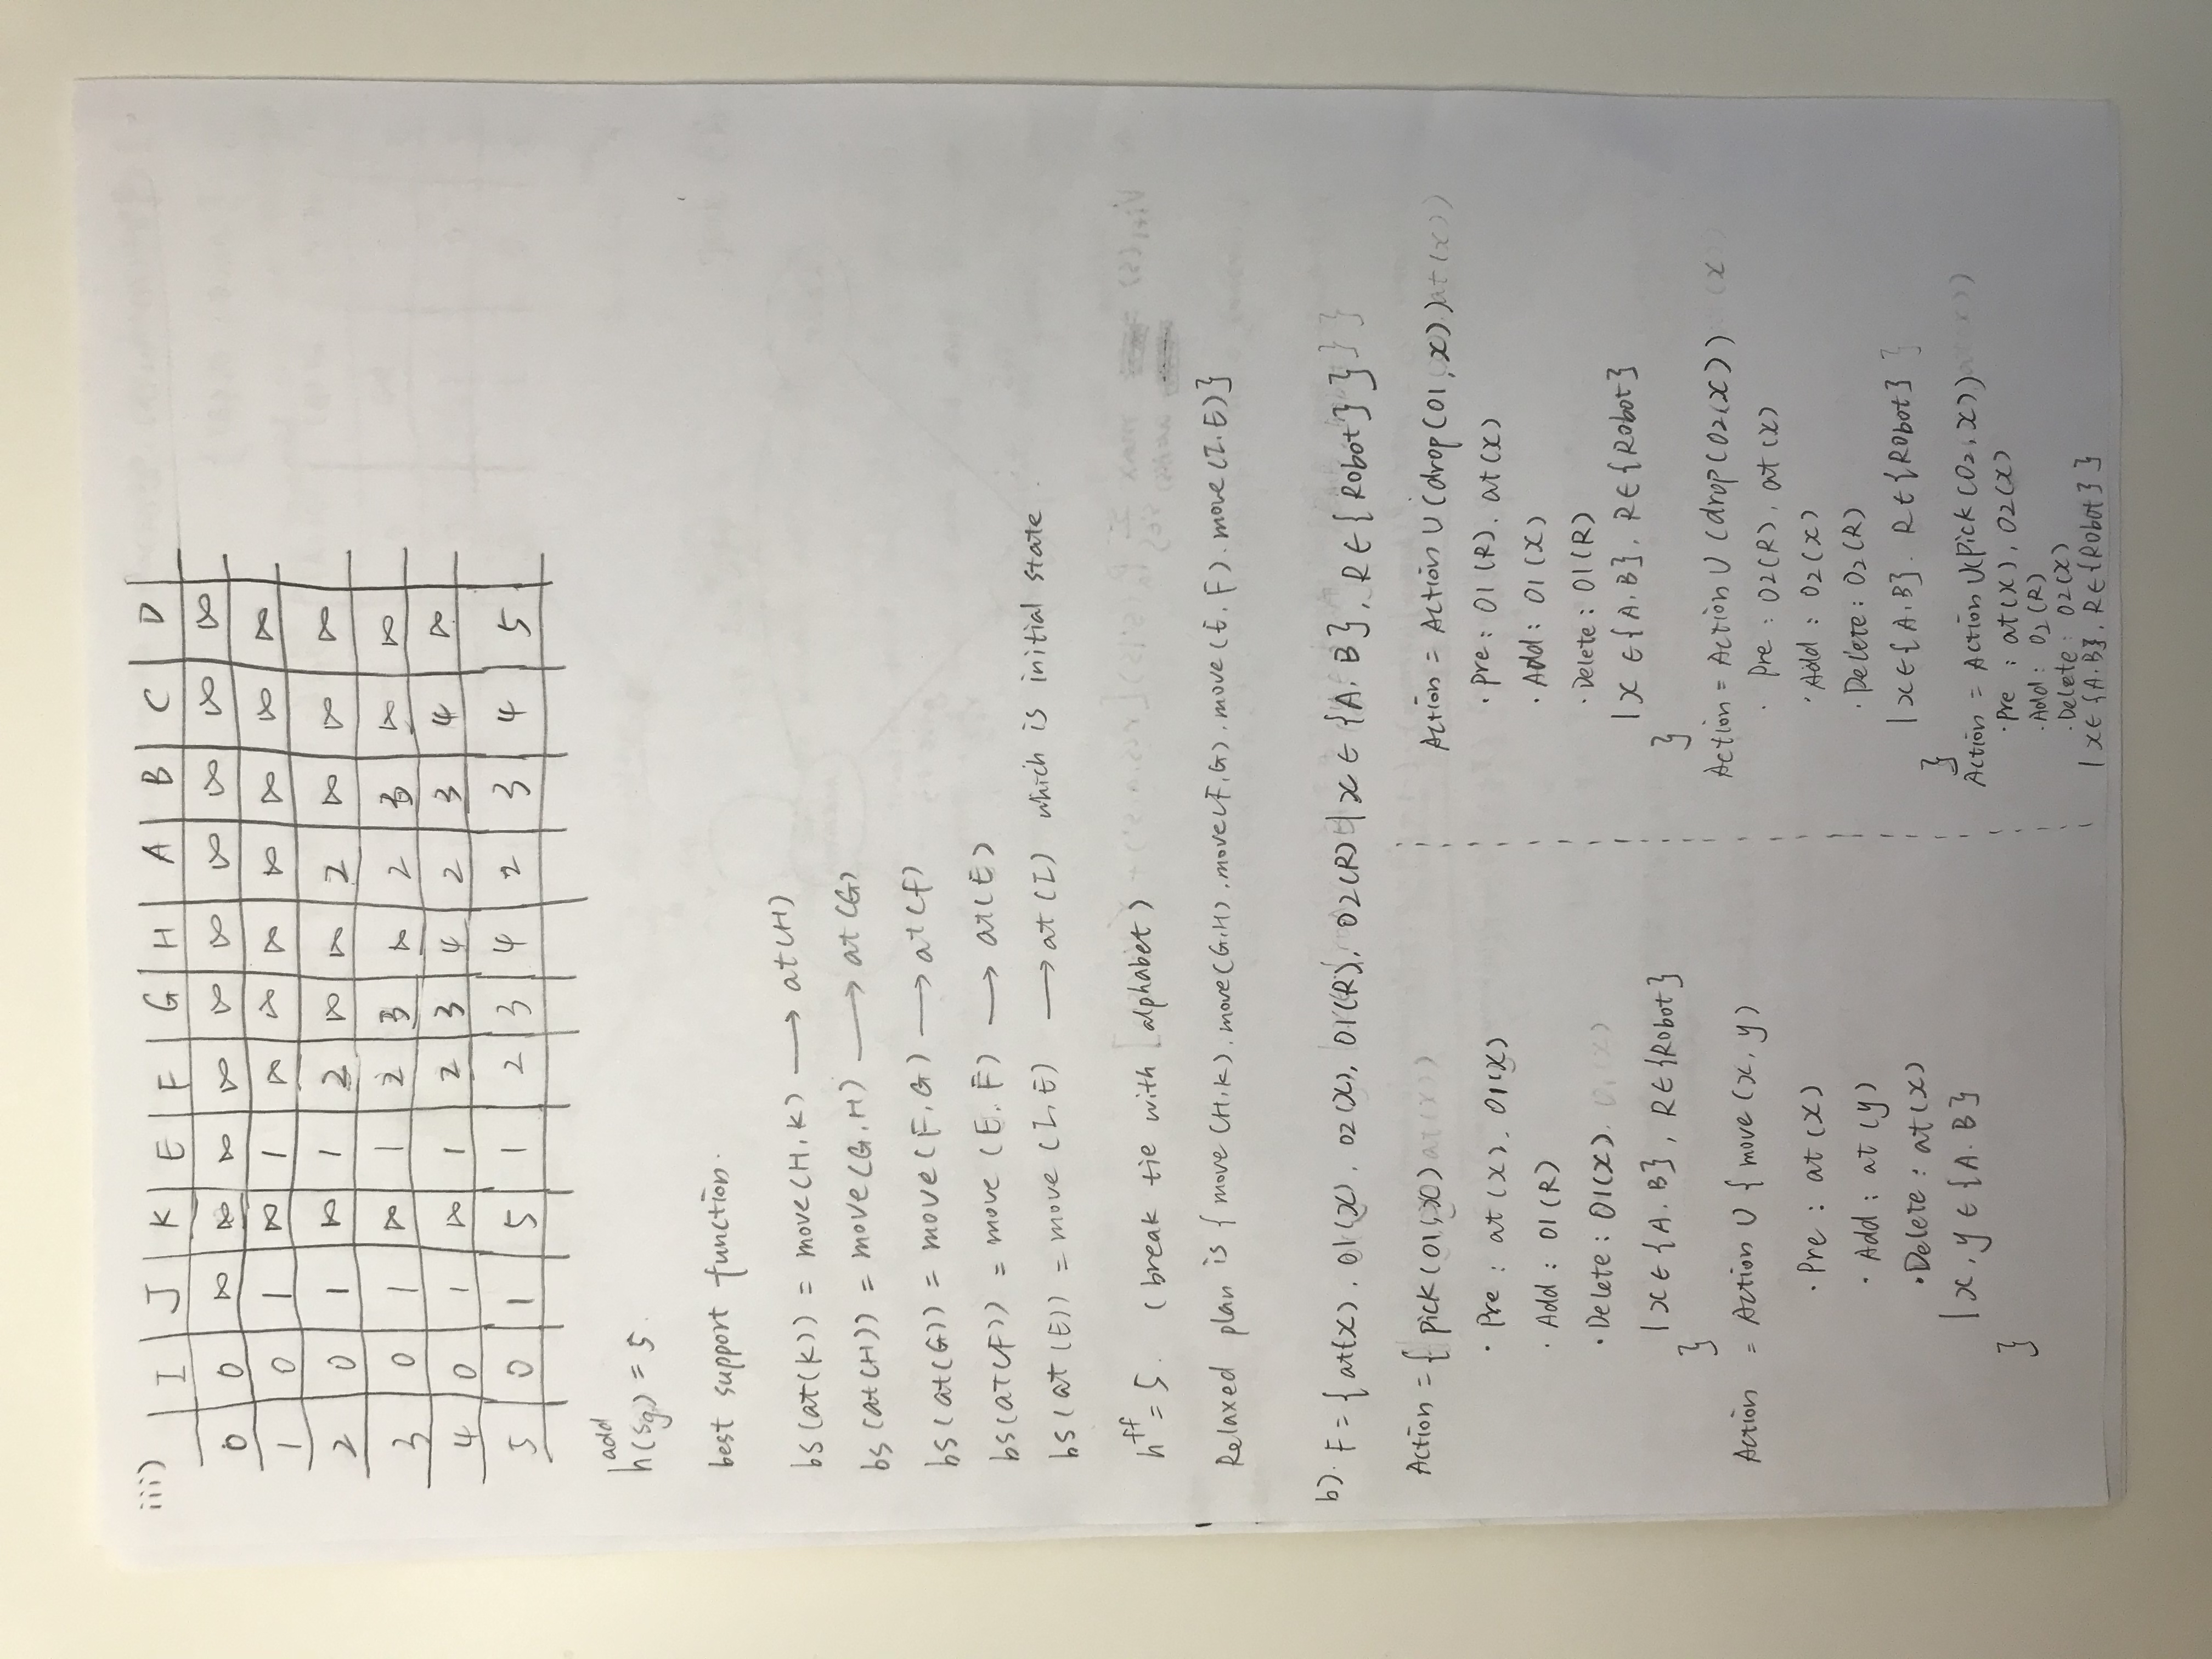 iii)
I J K E F G H A B C D
0 0 ∞ ∞ ∞ ∞ ∞ ∞ ∞ ∞ ∞ ∞
1 0 1 ∞ 1 ∞ ∞ ∞ ∞ ∞ ∞ ∞
2 0 1 ∞ 1 2 ∞ ∞ 2 ∞ ∞ ∞
3 0 1 ∞ 1 2 3 ∞ 2 3 ∞ ∞
4 0 1 ∞ 1 2 3 4 2 3 4 ∞
5 0 1 5 1 2 3 4 2 3 4 5
h^add(sg) = 5.
best support function.
bs(at(K)) = move(H,K) ⟶ at(H)
bs(at(H)) = move(G,H) ⟶ at(G)
bs(at(G)) = move(F,G) ⟶ at(F)
bs(at(F)) = move(E,F) ⟶ at(E)
bs(at(E)) = move(I,E) ⟶ at(I) which is initial state.
h^ff = 5. (break tie with alphabet)
Relaxed plan is {move(H,K).move(G,H).move(F,G).move(E,F).move(I,E)}
b). F={at(x), O1(x), O2(x), O1(R), O2(R) | x∈{A,B}, R∈{Robot}}
Action = { pick(O1,x)
· Pre : at(x), O1(x)
· Add : O1(R)
· Delete : O1(x).
| x∈{A,B}, R∈{Robot}
}
Action = Action ∪ { move(x,y)
· Pre : at(x)
· Add : at(y)
· Delete : at(x)
| x,y∈{A,B}
}
Action = Action ∪ (drop(O1,x))
· Pre : O1(R), at(x)
· Add : O1(x)
· Delete : O1(R)
| x∈{A,B}, R∈{Robot}
}
Action = Action ∪ (drop(O2(x))
· Pre : O2(R), at(x)
· Add : O2(x)
· Delete : O2(R)
| x∈{A,B}. R∈{Robot}
}
Action = Action ∪(Pick(O2,x))
· Pre : at(x), O2(x)
· Add : O2(R)
· Delete : O2(x)
| x∈{A,B}, R∈{Robot} }